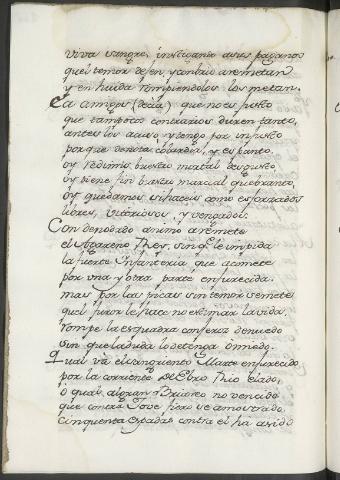 viva sangre, instiganla a sus paganos
quel temor dejen, y con brio arremetan
y en huida rompiendolos los metan.
Ea amigos (decia) que no es justo
que tampocos contrarios duren tanto,
antes los acuso y tengo por injusto
porque denota cobardia, y espanto.
oy redimis buestro mortal disgusto
oy tiene fin buestro marcial quebranto
oy quedamos si haceis como esforzados
libres, vitoriosos, y vengados.
Con denodado animo arremete
el Agareno Rey, sin qe. le impida
la fuerte infanteria que acomete
por una y otra parte enfurecida.
mas por las picas sin temor se mete
quel furor le hace no estimar la vida.
rompe la esquadra con feroz denuedo
sin que la duda lo detenga o miedo.
Qual va el sangriento Marte enfurecido
por la corriente del Ebro Rio elado,
o qual Briareo no vencido
que contra Jove fiero se a mostrado
cinquenta espadas contra el ha asido